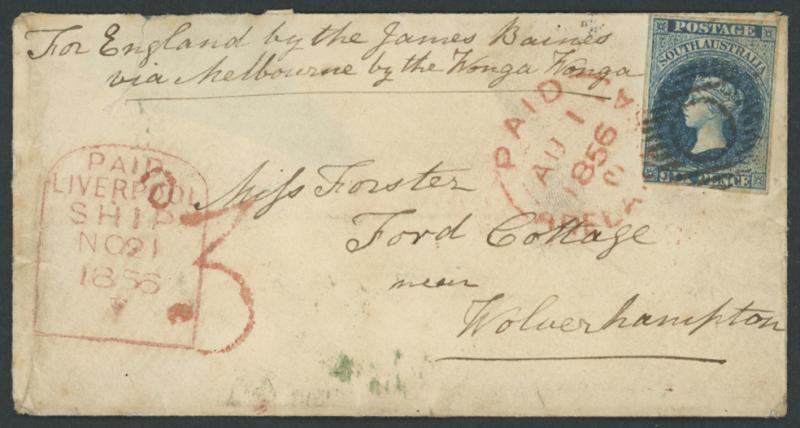 For England by the James Baines
via Melbourne by the Wonga Wonga
POSTAGE
SOUTH AUSTRALIA
SIX PENCE
PAID
AU 1
1856
ADELA
PAID
LIVERPOOL
SHIP
NO 21
1856
3
Miss Forster
Ford Cottage
near
Wolverhampton